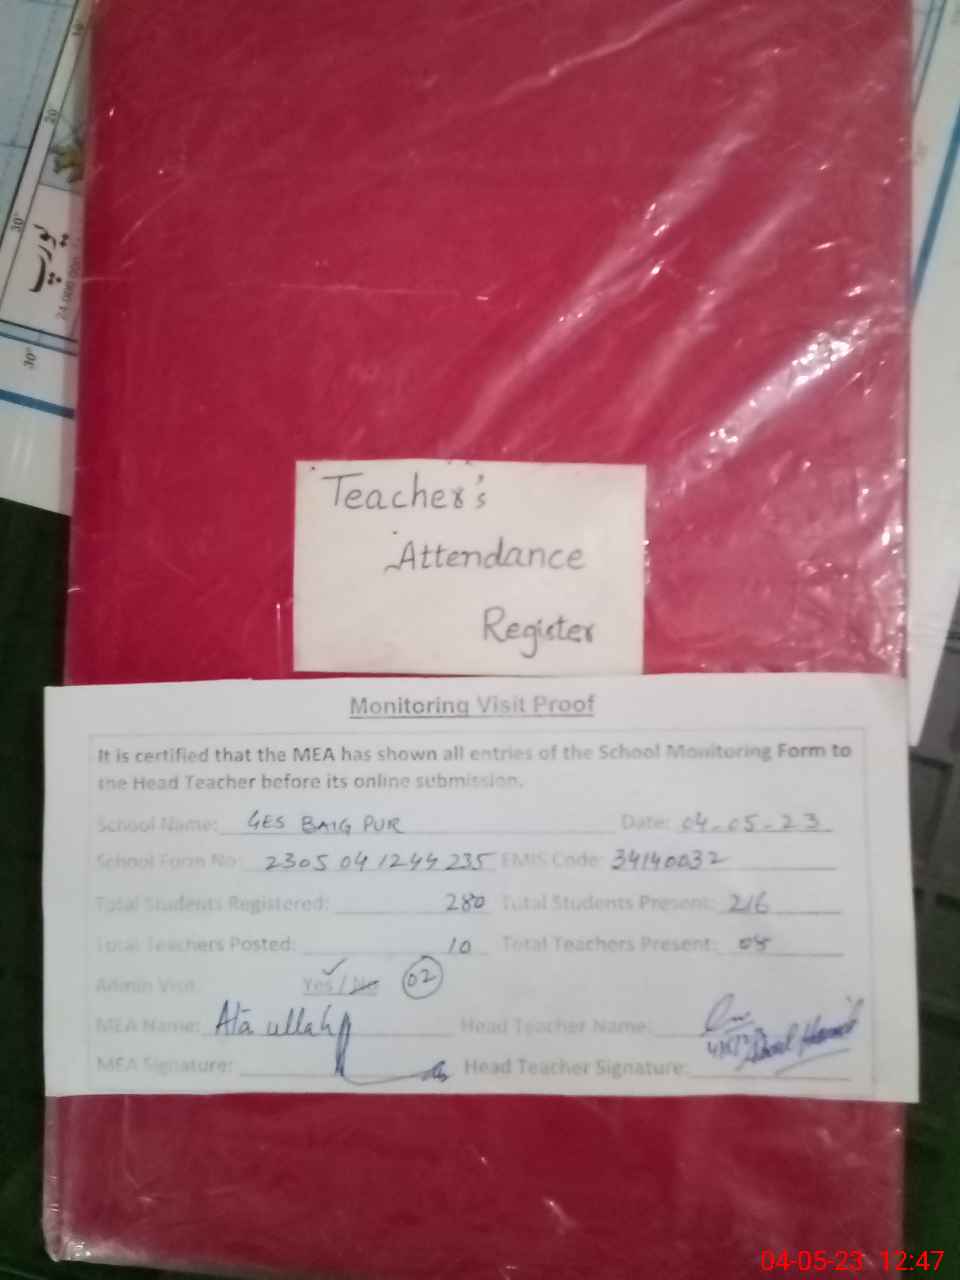 30°
20
یورپ
30°
Teacher's
Attendance
Register
Monitoring Visit Proof
It is certified that the MEA has shown all entries of the School Monitoring Form to
the Head Teacher before its online submission.
School Name: GES BAIG PUR Date: 04-05-23
School Form No: 2305 04 1244 235 EMIS Code: 34140032
Total Students Registered: 280 Total Students Present: 216
Total Teachers Posted: 10 Total Teachers Present:
Admin Visit Yes / No 02
MEA Name: Ata ullah Head Teacher Name:
MEA Signature: Head Teacher Signature:
04-05-23 12:47